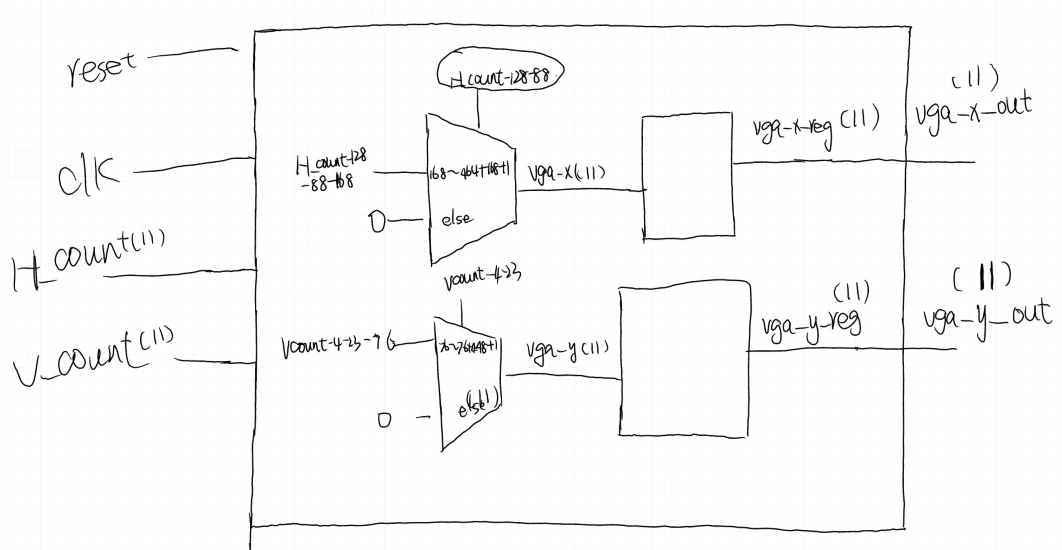 reset
clk
H_count(11)
V_count(11)
H_count-128-88
H_count-128
-88-168
168~464+168+1
0
else
vga-x(11)
vga-x-reg (11)
(11)
vga-x-out
vcount-4-23
Vcount-4-23-76
0
else
vga-y(11)
(11)
vga-y-reg
(11)
vga-y-out